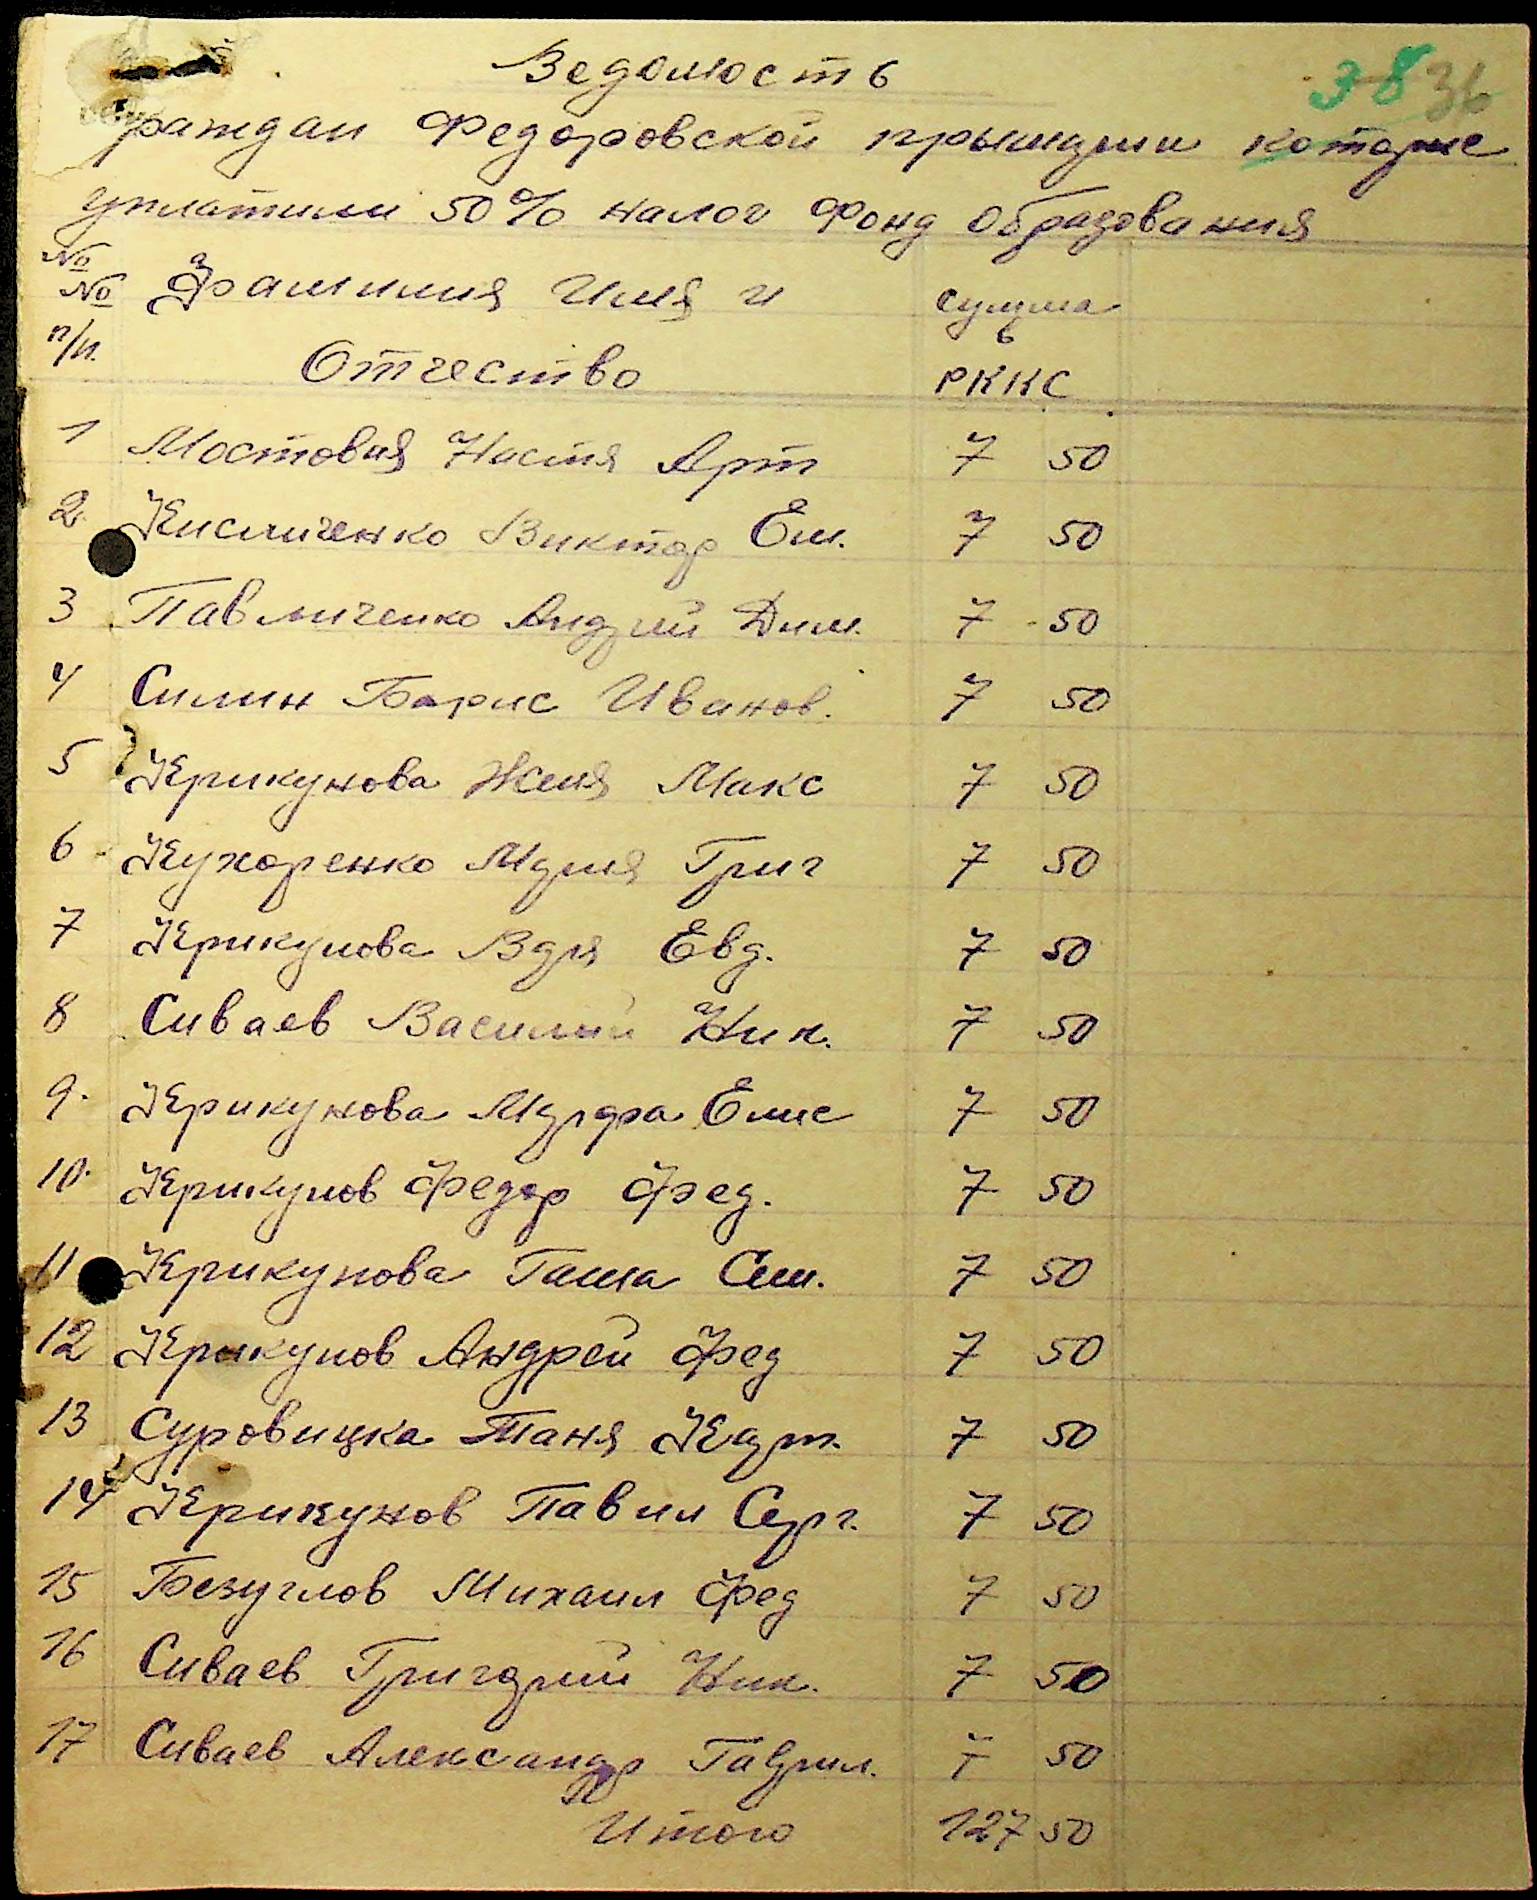 38 36
Ведомость
Граждан Федоровской прымэрии которые
уплатили 50% налог Фонд Образования
№ № п/п. Фамилия Имя и Отчество сумма в РККС
1 Мостовая Настя Арт 7 50
2. Кисличенко Виктор Ем. 7 50
3 Павличенко Андрий Дим. 7 50
4 Силин Борис Иванов. 7 50
5 Крикунова Женя Макс 7 50
6 Кухоренко Мария Григ 7 50
7 Крикунова Варя Евд. 7 50
8 Сиваев Василий Ник. 7 50
9. Крикунова Марфа Елис 7 50
10. Крикунов Федор Фед. 7 50
11 Крикунова Гаша Сем. 7 50
12 Крикунов Андрей Фед 7 50
13 Суровицка Таня Кар. 7 50
14 Крикунов Павил Серг. 7 50
15 Безуглов Михаил Фед 7 50
16 Сиваев Григорий Ник. 7 50
17 Сиваев Александр Гаврил. 7 50
Итого 127 50